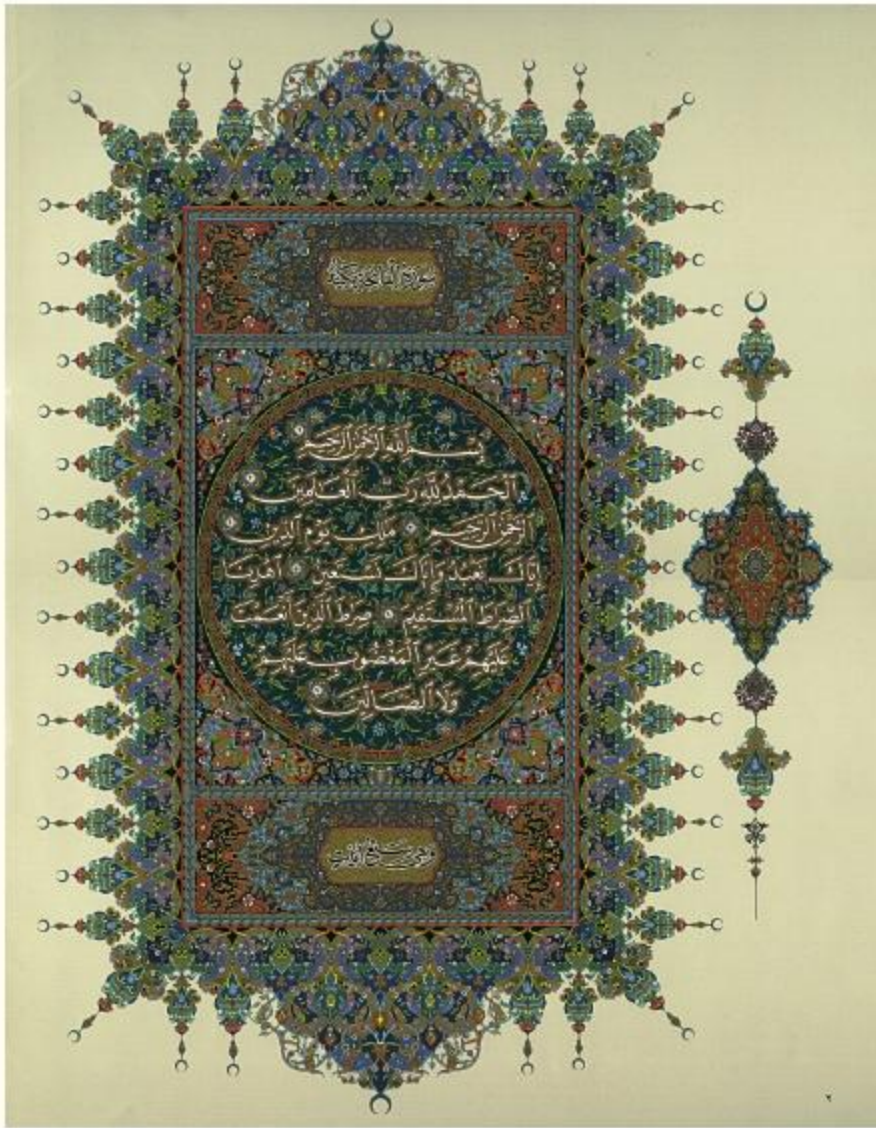 سورة الفاتحة مكية
بسم الله الرحمن الرحيم ١
الحمد لله رب العالمين ٢
الرحمن الرحيم ٣ ملك يوم الدين ٤
إياك نعبد وإياك نستعين ٥ اهدنا
الصرط المستقيم ٦ صرط الذين أنعمت
عليهم غير المغضوب عليهم
ولا الضالين ٧
وهي سبع آيات
٢